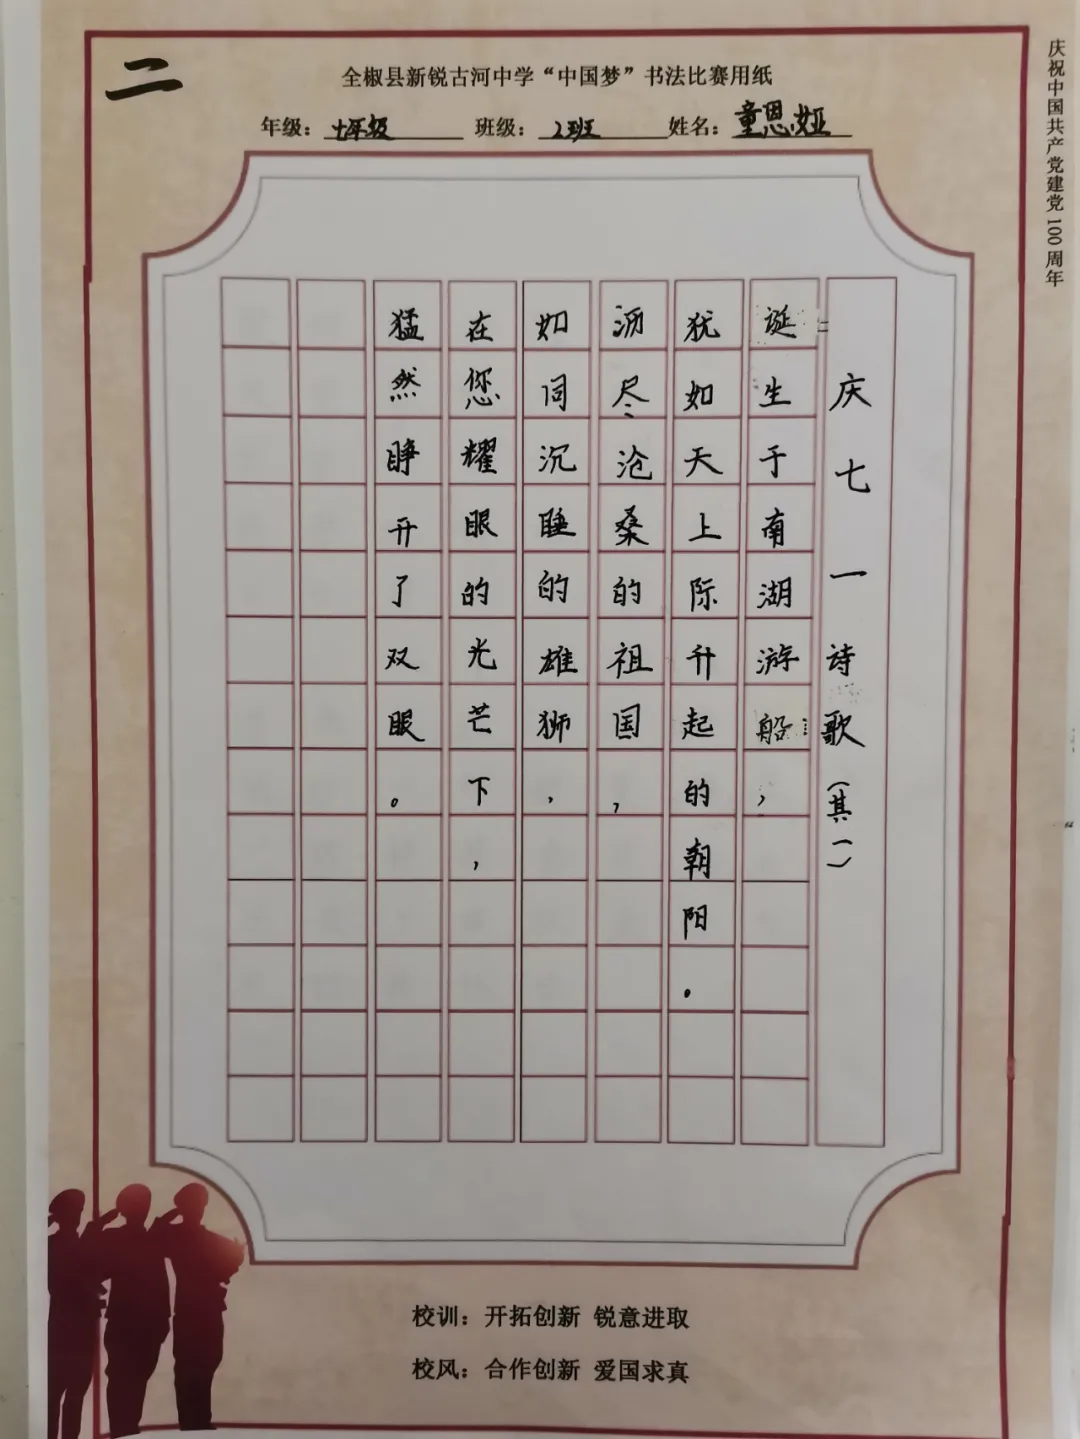 二
全椒县新锐古河中学“中国梦”书法比赛用纸
年级：七年级 班级：2班 姓名：童恩娅
庆祝中国共产党建党100周年
庆七一诗歌（其一）
诞生于南湖游船，
犹如天上际升起的朝阳。
沥尽沧桑的祖国，
如同沉睡的雄狮，
在您耀眼的光芒下，
猛然睁开了双眼。
校训：开拓创新 锐意进取
校风：合作创新 爱国求真